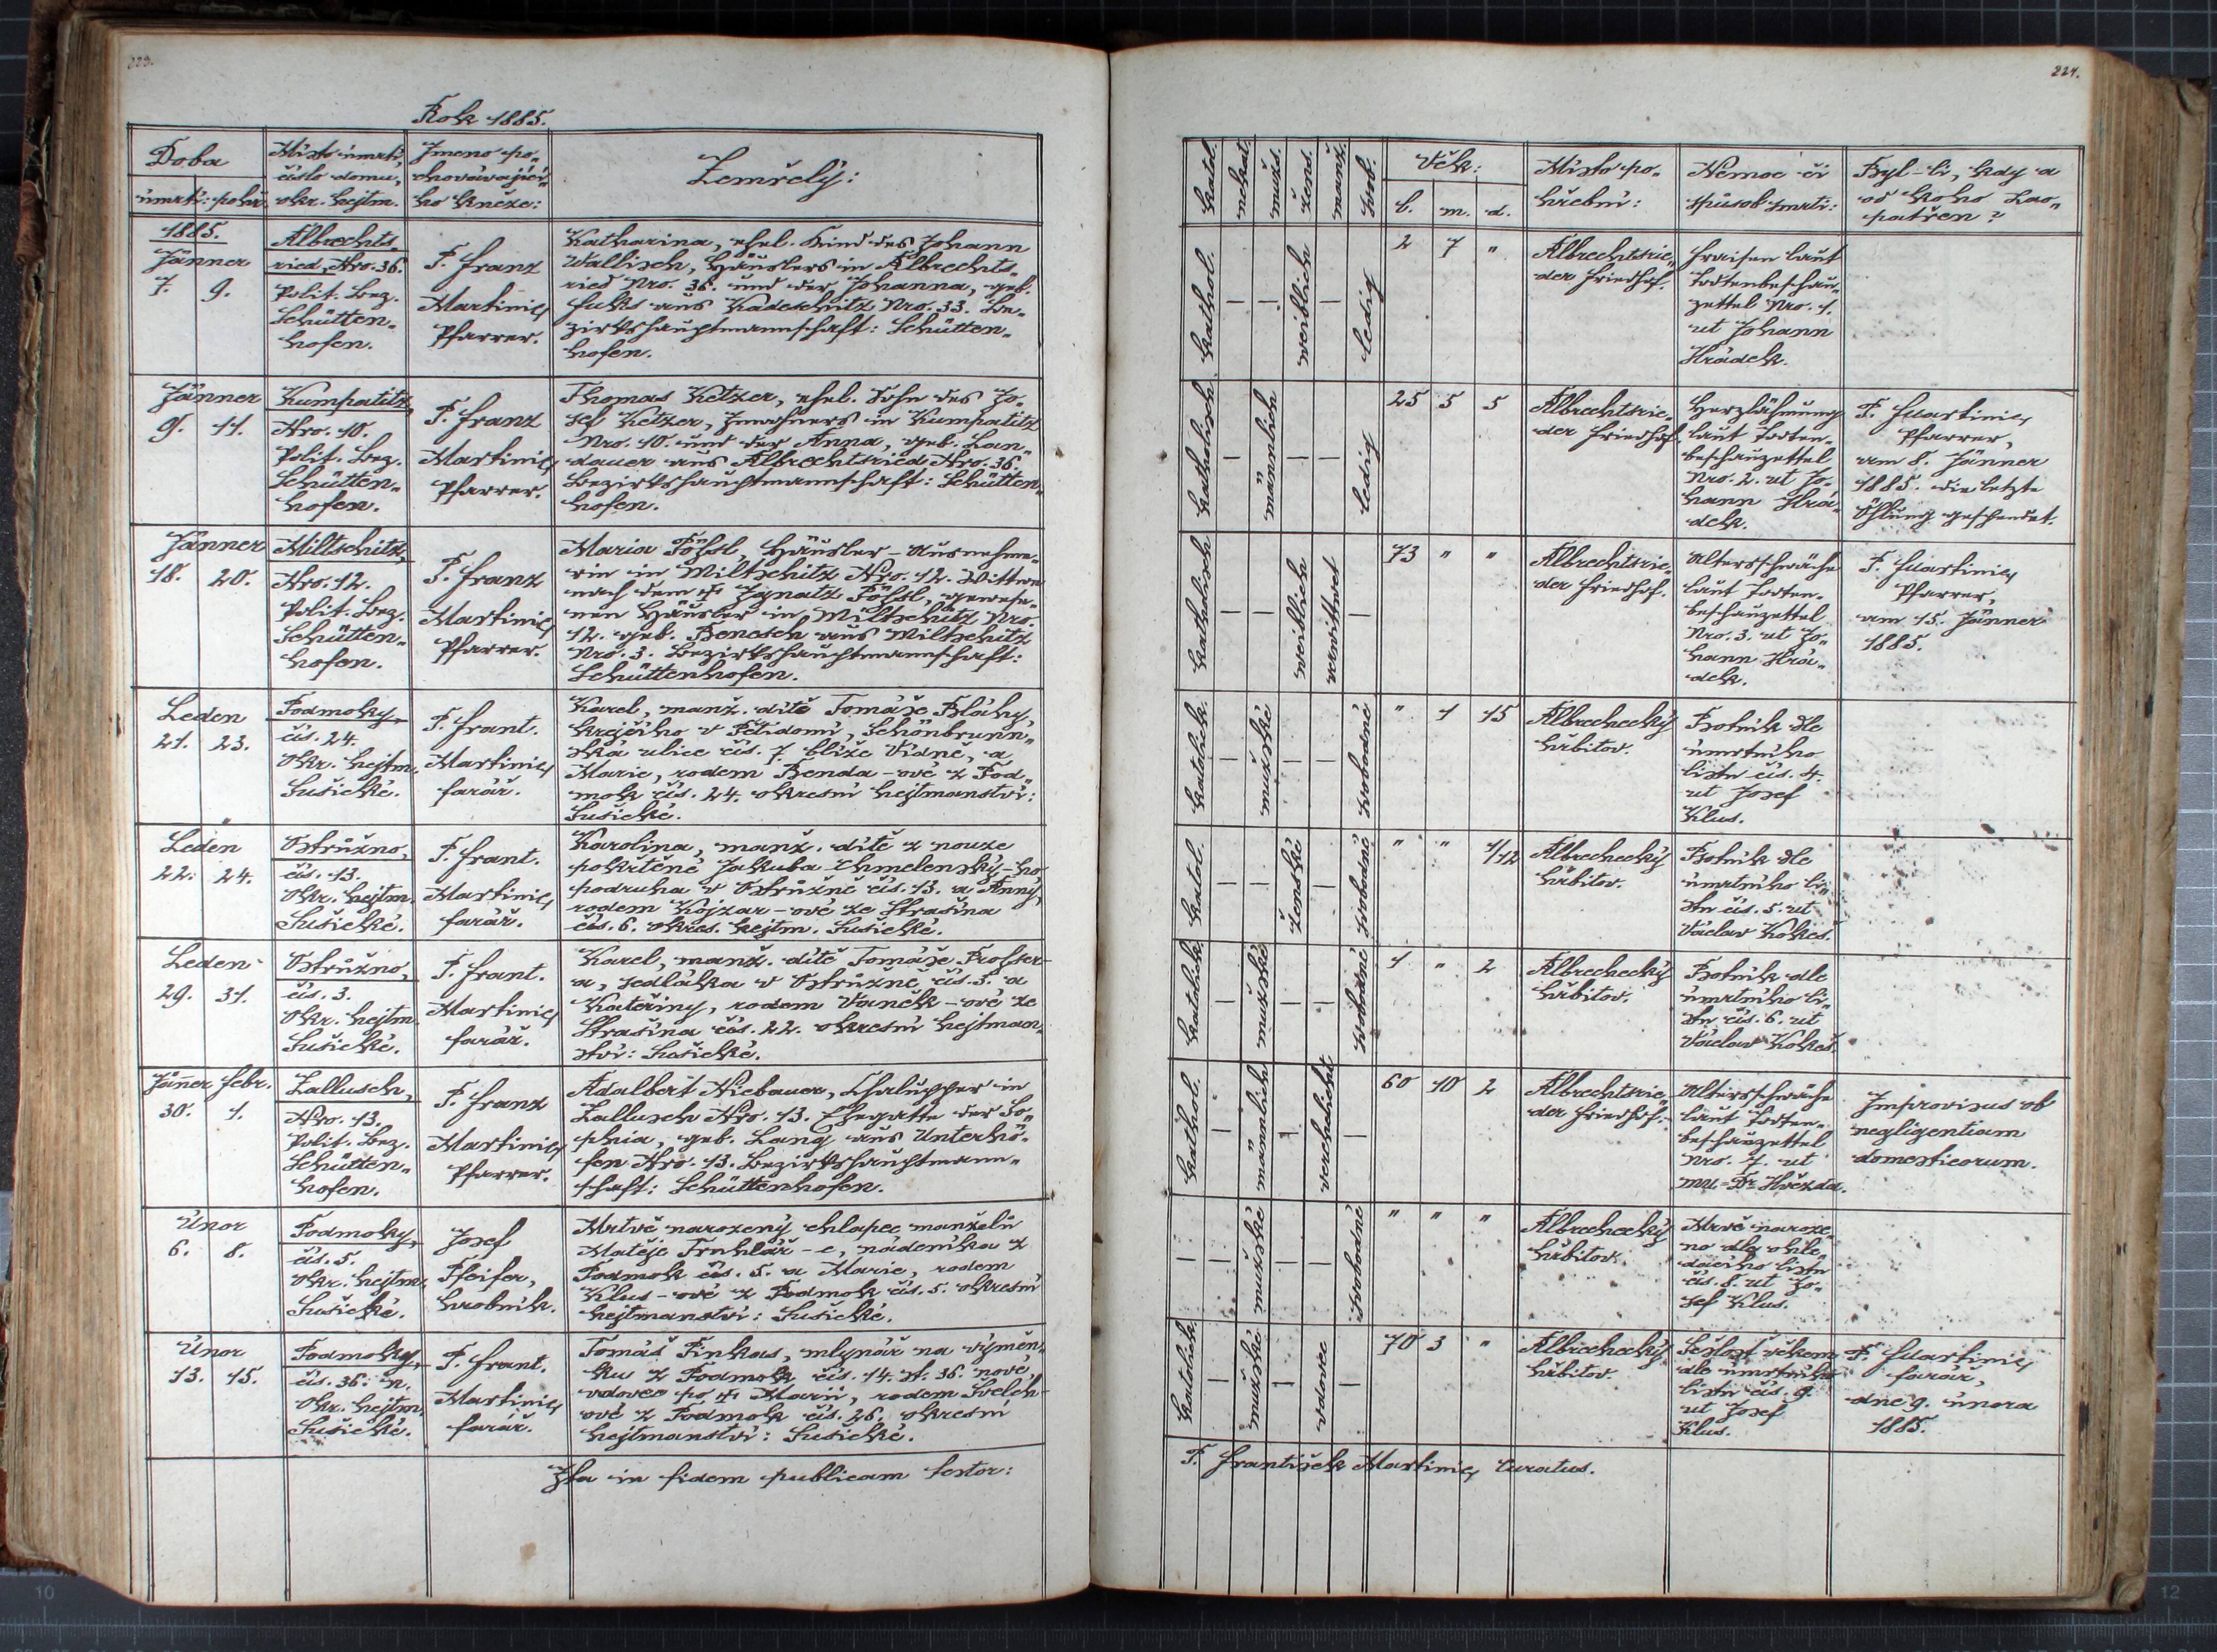 223.
Rok 1885.
Doba
úmrtí: pohř.
Místo úmrtí,
číslo domu,
okr. hejtm.
Jmeno po„
chovávající„
ho kněze:
Zemřelý:
1885.
Jänner
7. 9.
Albrechts„
ried, Nro. 36.
Polit. Bez.
Schütten„
hofen.
P. Franz
Martinic,
Pfarrer.
Katharina, ehel. Kind des Johann
Wallisch, Häuslers in Albrechts„
ried Nro. 36. und der Johanna, geb.
Fuks aus Kadeschitz Nro. 33. Be„
zirkshauptmannschaft: Schütten„
hofen.
Jänner
9. 11.
Kumpatitz,
Nro. 10.
Polit. Bez.
Schütten„
hofen.
P. Franz
Martinic,
Pfarrer.
Thomas Ketzer, ehel. Sohn des Jo„
sef Ketzer, Inwohners in Kumpatitz
Nro. 10. und der Anna, geb. Lan„
dauer aus Albrechtsried Nro. 36.
Bezirkshauptmannschaft: Schütten„
hofen.
Jänner
18. 20.
Miltschitz,
Nro. 12.
Polit. Bez.
Schütten„
hofen.
P. Franz
Martinic,
Pfarrer.
Maria Pößl, Häusler-Ausnehme„
rin in Miltschitz Nro. 12. Wittwe
nach dem † Ignatz Pößl, gewese„
nen Häusler in Miltschitz Nro.
12. geb. Benesch aus Miltschitz
Nro. 3. Bezirkshauptmannschaft:
Schüttenhofen.
Leden
21. 23.
Podmoky,
čís. 24.
Okr. hejtm.
Sušické.
P. Frant.
Martinic,
farář.
Karel, manž. dítě Tomáše Bláhy,
krejčího v Pětidomí, Schönbrunn„
ská ulice čís. 7. blíže Vídně, a
Marie, rodem Benda-ové z Pod„
mok čís. 24. okresní hejtmanství:
Sušické.
Leden
22. 24.
Ostružno,
čís. 13.
Okr. hejtm.
Sušické.
P. Frant.
Martinic,
farář.
Karolina, manž. dítě z nouze
pokřtěné Jakuba Chmelenský-ho
podruha v Ostružně čís. 13. a Anny,
rodem Kojzar-ové ze Strašína
čís. 6. okres. hejtm. Sušické.
Leden
29. 31.
Ostružno,
čís. 3.
Okr. hejtm.
Sušické.
P. Frant.
Martinic,
farář.
Karel, manž. dítě Tomáše Prosser-
a, sedláka v Ostružně čís. 3. a
Kateřiny, rodem Vaněk-ové ze
Strašína čís. 22. okresní hejtman„
ství: Sušické.
Jänner Febr.
30. 1.
Zallusch,
Nro. 13.
Polit. Bez.
Schütten„
hofen.
P. Franz
Martinic,
Pfarrer.
Adalbert Niebauer, Chalupper in
Zallusch Nro. 13. Ehegatte der So„
phia, geb. Lang aus Unterhö„
fen Nro. 13. Bezirkshauptmann„
schaft: Schüttenhofen.
Únor
6. 8.
Podmoky,
čís. 5.
Okr. hejtm.
Sušické.
Josef
Pfeifer,
hrobník.
Mrtvě narozený chlapec manželů
Matěje Truhlář-e, nádeníka z
Podmok čís. 5. a Marie, rodem
Klus-ové z Podmok čís. 5. okresní
hejtmanství: Sušické.
Únor
13. 15.
Podmoky,
čís. 36. n.
Okr. hejtm.
Sušické.
P. Frant.
Martinic,
farář.
Tomáš Pinkas, mlynář na výměn„
ku z Podmok čís. 14. st. 36. nové,
vdovec po † Marii, rodem Svelch-
ové z Podmok čís. 26. okresní
hejtmanství: Sušické.
Ita in fidem publicam testor:
224.
katol.
nekat.
mužs.
žens.
manž.
svob.
Věk:
l. m. d.
Místo po„
hřební:
Nemoc či
způsob smrti:
Byl-li, kdy a
od koho zao„
patřen?
kathol.
—
—
weiblich
—
ledig
2 7 „
Albrechtsrie„
der Friedhof.
Fraisen laut
Todtenbeschau„
zettel Nro. 1.
ut Johann
Hrádek.
katholisch
—
männlich
—
—
ledig
25 5 5
Albrechtsrie„
der Friedhof.
Herzlähmung
laut Todten„
beschauzettel
Nro. 2. ut Jo„
hann Hrá„
dek.
P. Martinic,
Pfarrer,
am 8. Jänner
1885. die letzte
Öhlung gespendet.
katholisch
—
—
weiblich
verwittwet
—
73 „ „
Albrechtsrie„
der Friedhof.
Altersschwäche
laut Todten„
beschauzettel
Nro. 3. ut Jo„
hann Hrá„
dek.
P. Martinic,
Pfarrer,
am 15. Jänner
1885.
katolické
—
mužské
—
—
svobodné
„ 1 15
Albrechecký
hřbitov.
Psotník dle
úmrtního
listu čís. 4.
ut Josef
Klus.
katol.
—
—
ženské
—
svobodné
„ „ 1/12
Albrechecký
hřbitov.
Psotník dle
úmrtního li„
stu čís. 5. ut
Václav Kokeš.
katolické
—
mužské
—
—
svobodné
1 „ 2
Albrechecký
hřbitov.
Psotník dle
úmrtního li„
stu čís. 6. ut
Václav Kokeš.
kathol.
—
männlich
—
verehelicht
—
60 10 2
Albrechtsrie„
der Friedhof.
Altersschwäche
laut Todten„
beschauzettel
Nro. 7. ut
MU-Dr. Hvězda.
Improvisus ob
negligentiam
domesticorum.
—
—
mužské
—
—
svobodné
„ „ „
Albrechecký
hřbitov.
Mrvě naroze„
no dle ohle„
dacího listu
čís. 8. ut Jo„
sef Klus.
katolick.
—
mužské
—
vdovec
—
70 3 „
Albrechecký
hřbitov.
Sešlost věkem
dle úmrtního
listu čís. 9.
ut Josef
Klus.
P. Martinic,
farář,
dne 9. února
1885.
P. František Martinic, Curatus.
10
12